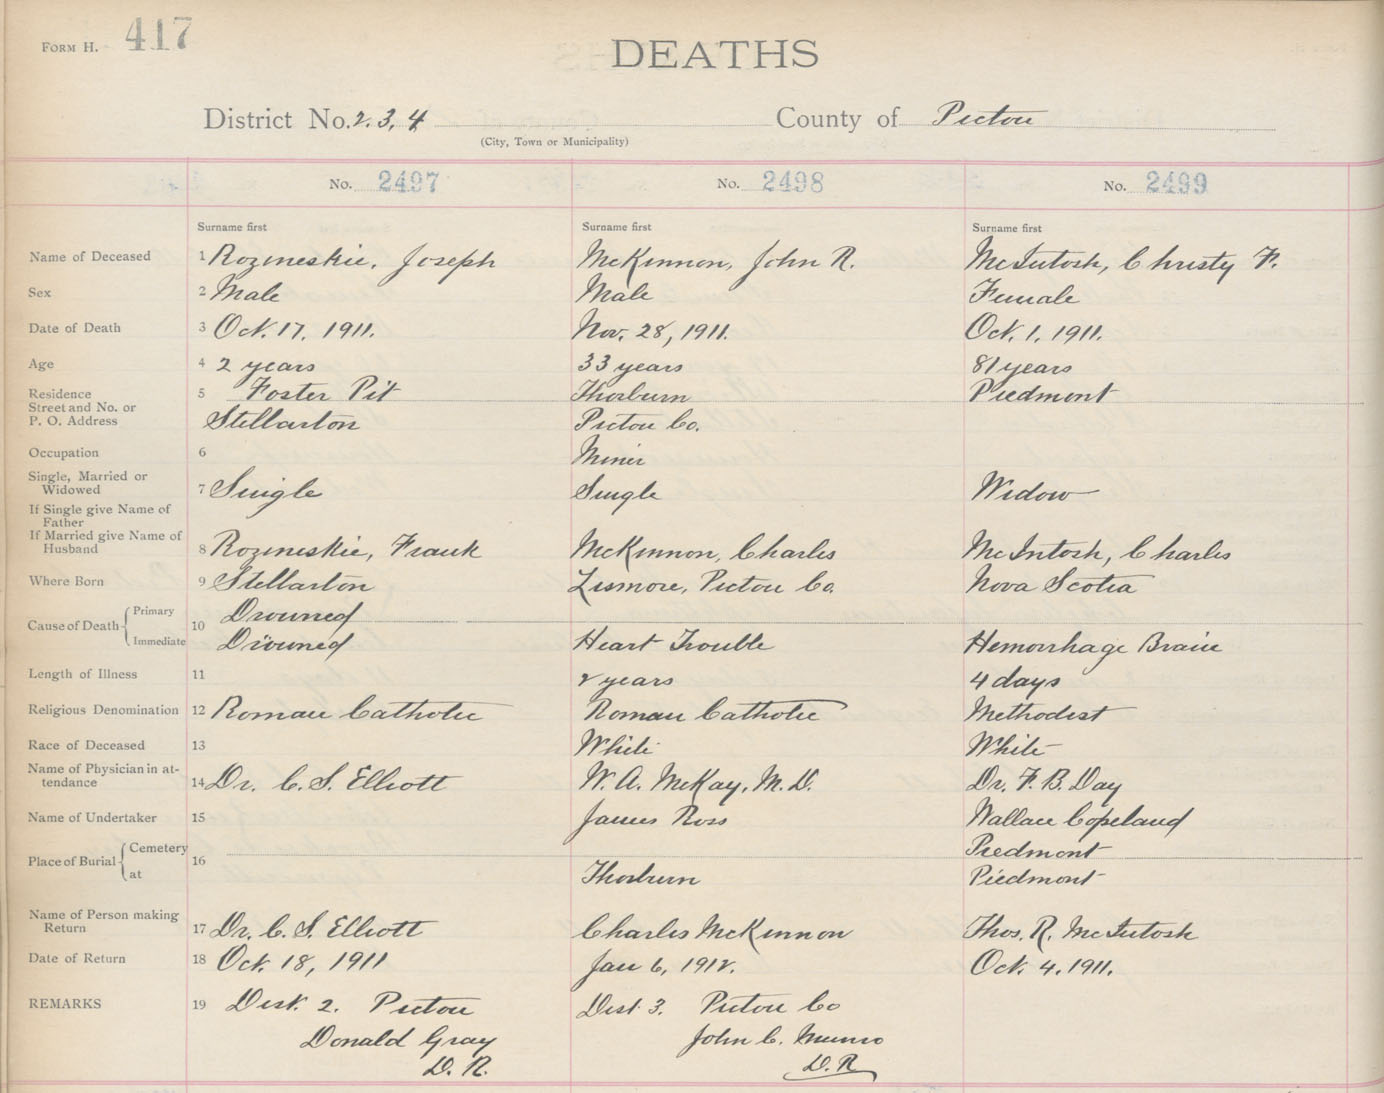 FORM H. 417
DEATHS
District No. 2. 3, 4 County of Pictou
(City, Town or Municipality)
No. 2497 No. 2498 No. 2499
Surname first Surname first Surname first
Name of Deceased 1 Rozineskie, Joseph McKinnon, John R. McIntosh, Christy F.
Sex 2 Male Male Female
Date of Death 3 Oct. 17, 1911. Nov. 28, 1911. Oct. 1, 1911.
Age 4 2 years 33 years 81 years
Residence 5 Foster Pit Thorburn Piedmont
Street and No. or
P. O. Address Stellarton Pictou Co.
Occupation 6 Miner
Single, Married or
Widowed 7 Single Single Widow
If Single give Name of
Father
If Married give Name of
Husband 8 Rozineskie, Frank McKinnon, Charles McIntosh, Charles
Where Born 9 Stellarton Lismore, Pictou Co. Nova Scotia
Cause of Death Primary 10 Drowned
Immediate Drowned Heart Trouble Hemorrhage Brain
Length of Illness 11 2 years 4 days
Religious Denomination 12 Roman Catholic Roman Catholic Methodist
Race of Deceased 13 White White
Name of Physician in at-
tendance 14 Dr. C. S. Elliott W. A. McKay, M. D. Dr. F. B. Day
Name of Undertaker 15 James Ross Wallace Copeland
Place of Burial Cemetery 16 Piedmont
at Thorburn Piedmont
Name of Person making
Return 17 Dr. C. S. Elliott Charles McKinnon Thos. R. McIntosh
Date of Return 18 Oct. 18, 1911 Jan 6, 1912. Oct. 4. 1911.
REMARKS 19 Dist. 2. Pictou Dist 3. Pictou Co
Donald Gray John C. Munro
D. R. D. R